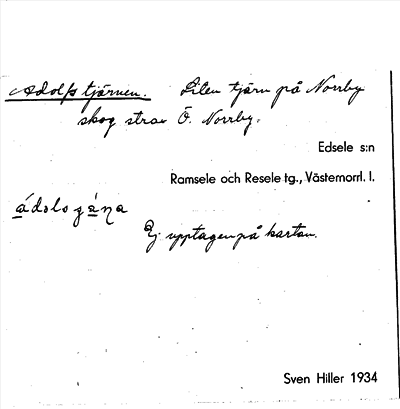 Adolfstjärnen. Liten tjärn på Norrby
skog strax Ö. Norrby.
Edsele s:n
Ramsele och Resele tg., Västernorrl. l.
Ej upptagen på kartan.
Sven Hiller 1934